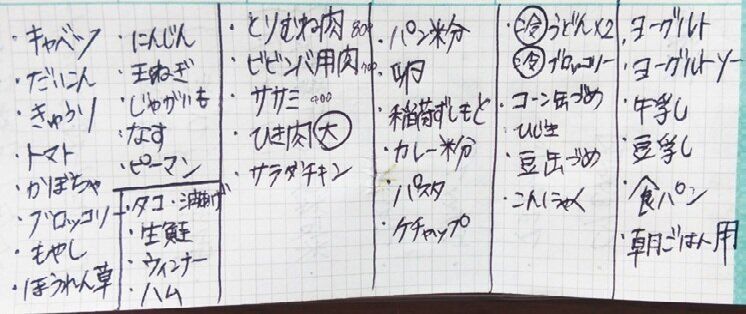 ・キャベツ
・だいこん
・きゅうり
・トマト
・かぼちゃ
・ブロッコリー
・もやし
・ほうれん草
・にんじん
・玉ねぎ
・じゃがいも
・なす
・ピーマン
・タコ・油揚げ
・生鮭
・ウィンナー
・ハム
・とりむね肉 800
・ビビンバ用肉
・ササミ 400
・ひき肉 大
・サラダチキン
・パン粉
・卵
・稲荷ずしもと
・カレー粉
・パスタ
・ケチャップ
・冷うどん×2
・冷ブロッコリー
・コーン缶づめ
・ひじき
・豆缶づめ
・こんにゃく
・ヨーグルト
・ヨーグルトソー
・牛乳
・豆乳
・食パン
・朝ごはん用